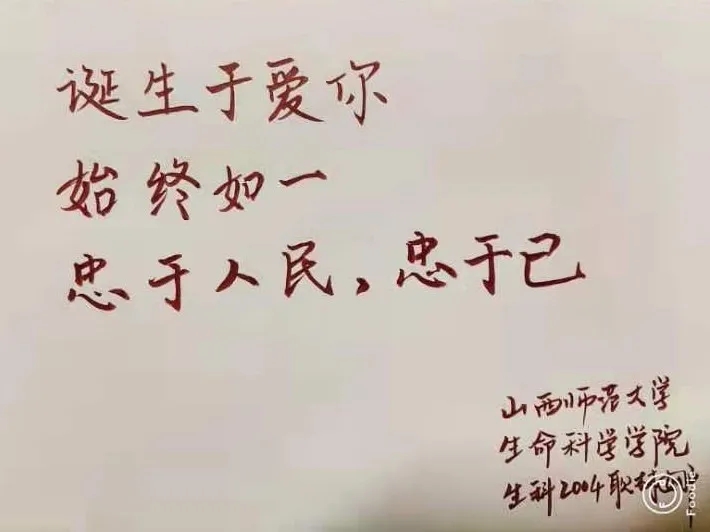 诞生于爱你
始终如一
忠于人民，忠于己
山西师范大学
生命科学学院
生科2004 耿
Foodie